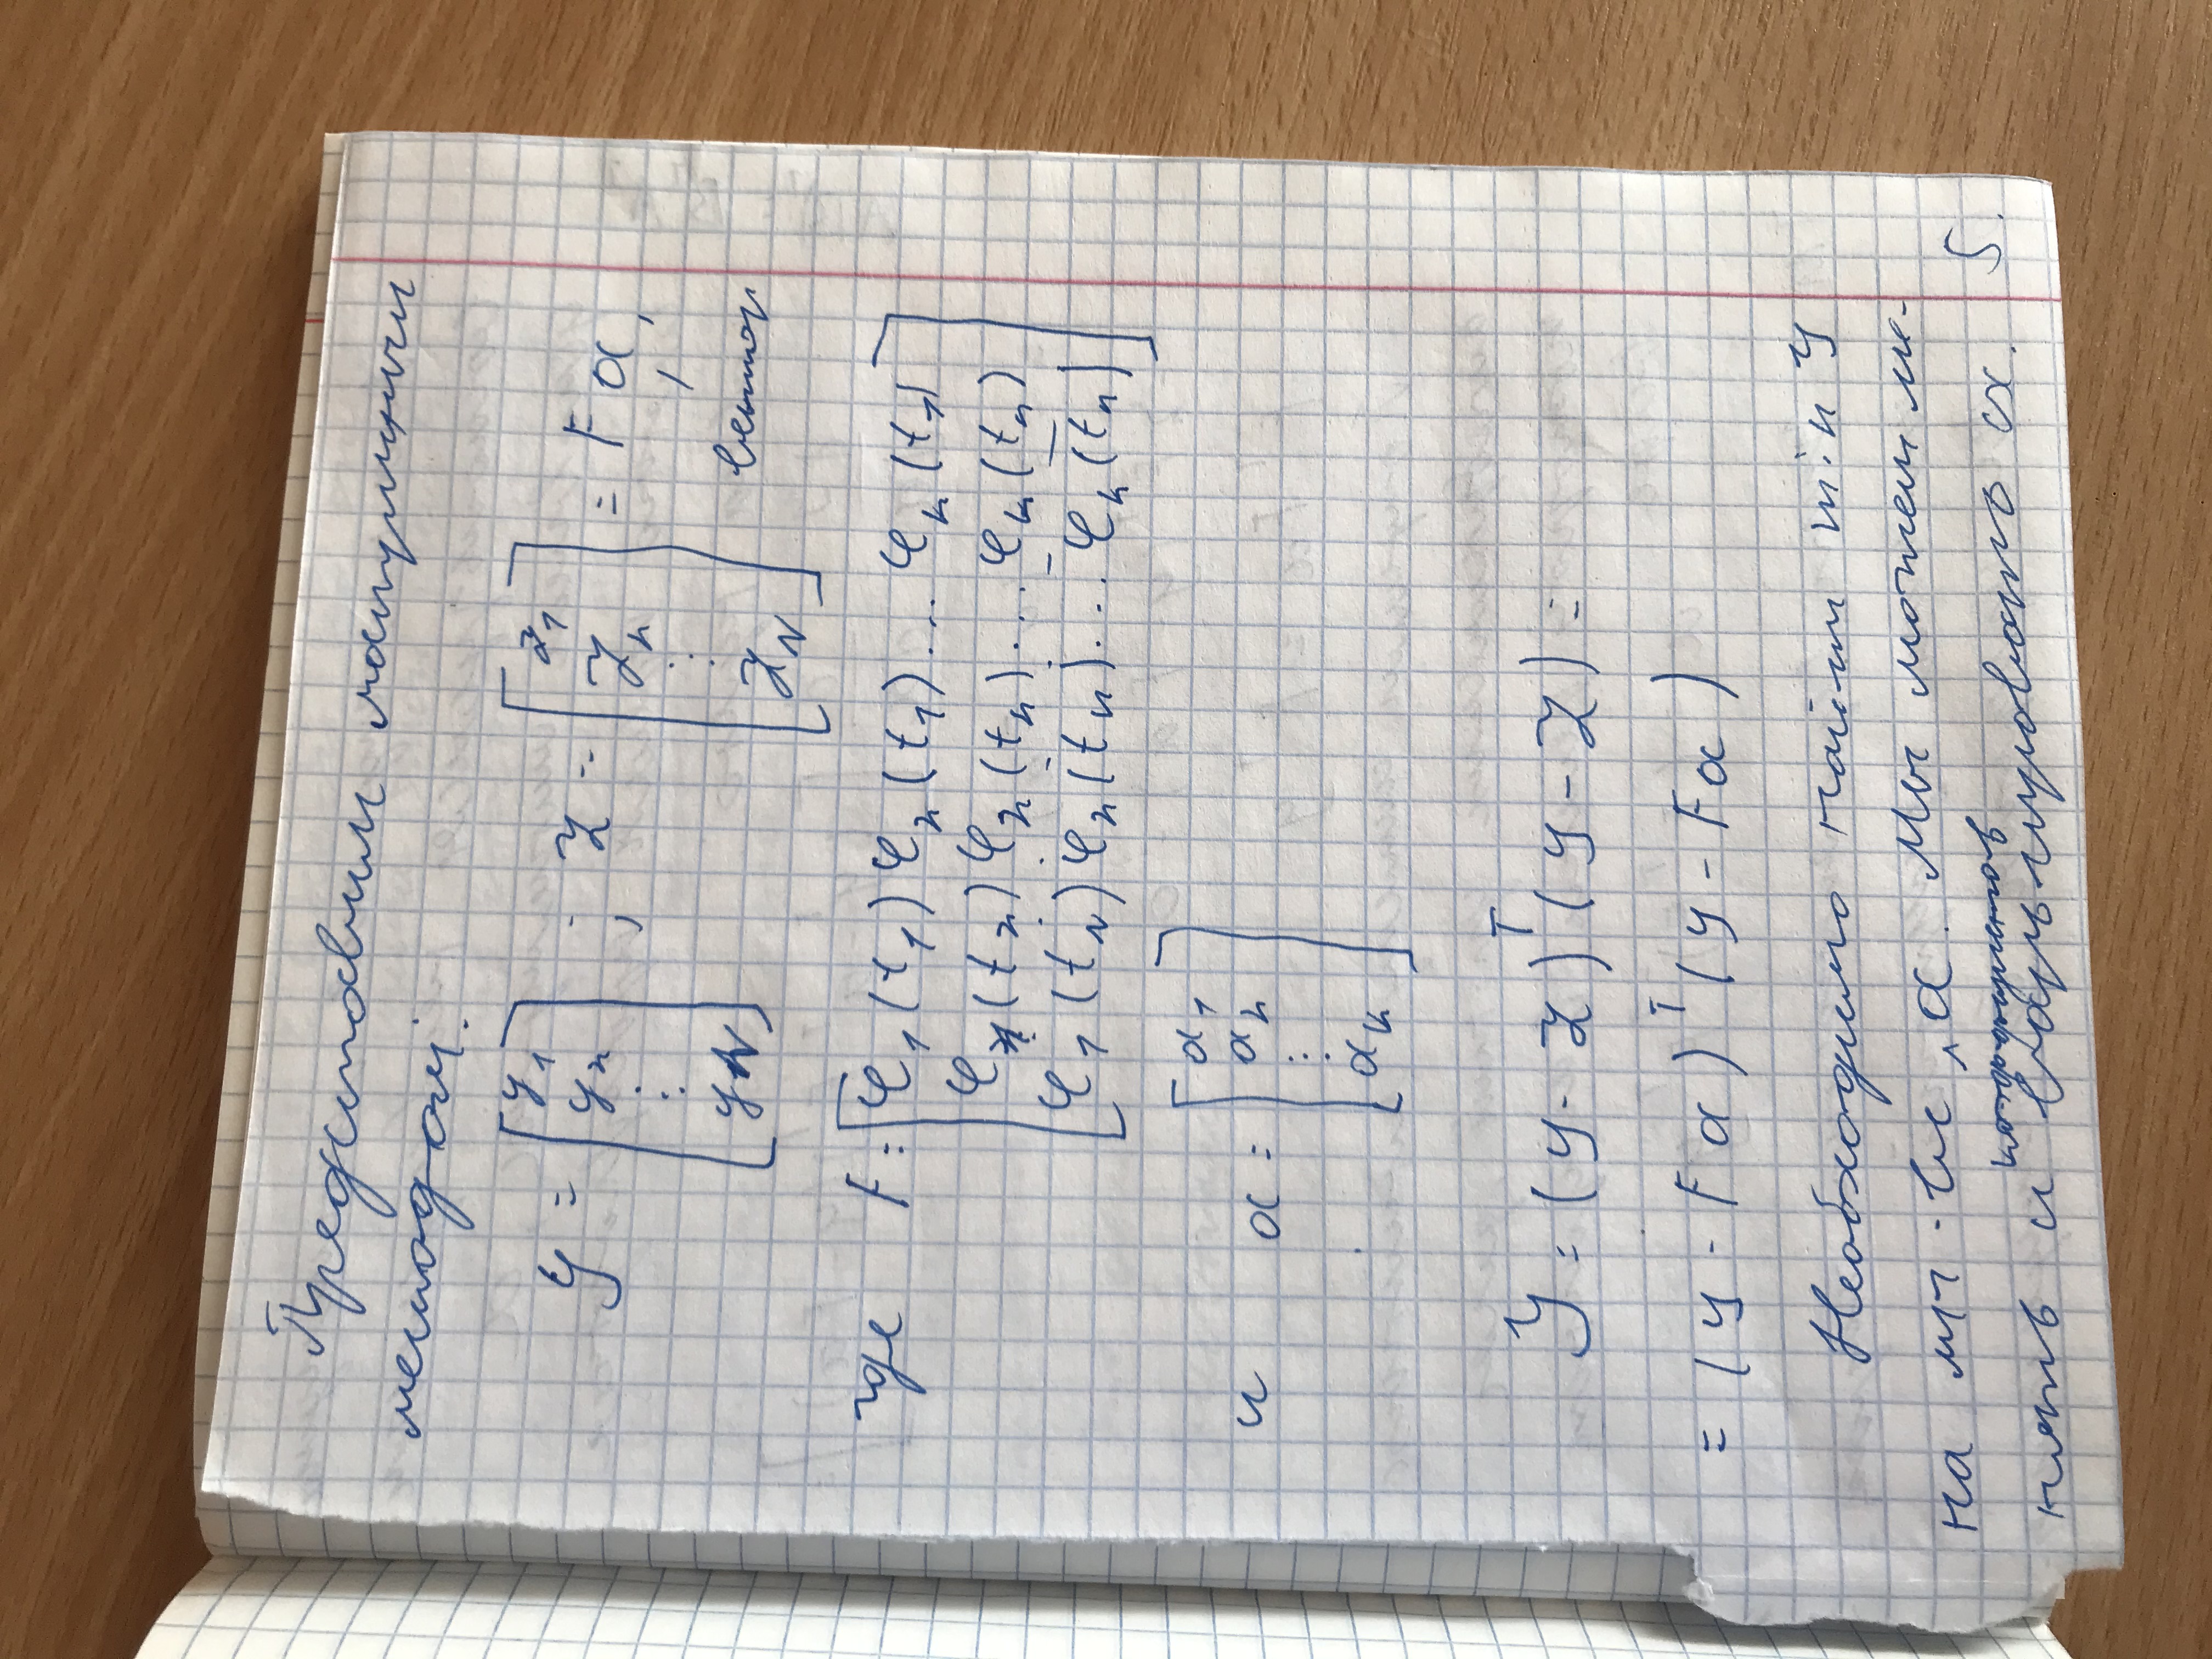 Представим матричным
методом:
y = [y₁ y₂ ⋮ y_N] ; z = [z₁ z₂ ⋮ z_N] = Fα,
вектор
где F = [φ₁(t₁) φ₂(t₁) ... φₖ(t₁)
φ₁(t₂) φ₂(t₂) ... φₖ(t₂)
φ₁(t_N) φ₂(t_N) ... φₖ(t_N)]
и α = [α₁ α₂ ⋮ αₖ]
Y = (y - z)ᵀ(y - z) =
= (y - Fα)ᵀ(y - Fα)
Необходимо найти min Y
на мн-ве α. Мы можем ме-
нять и варьировать α. 5.